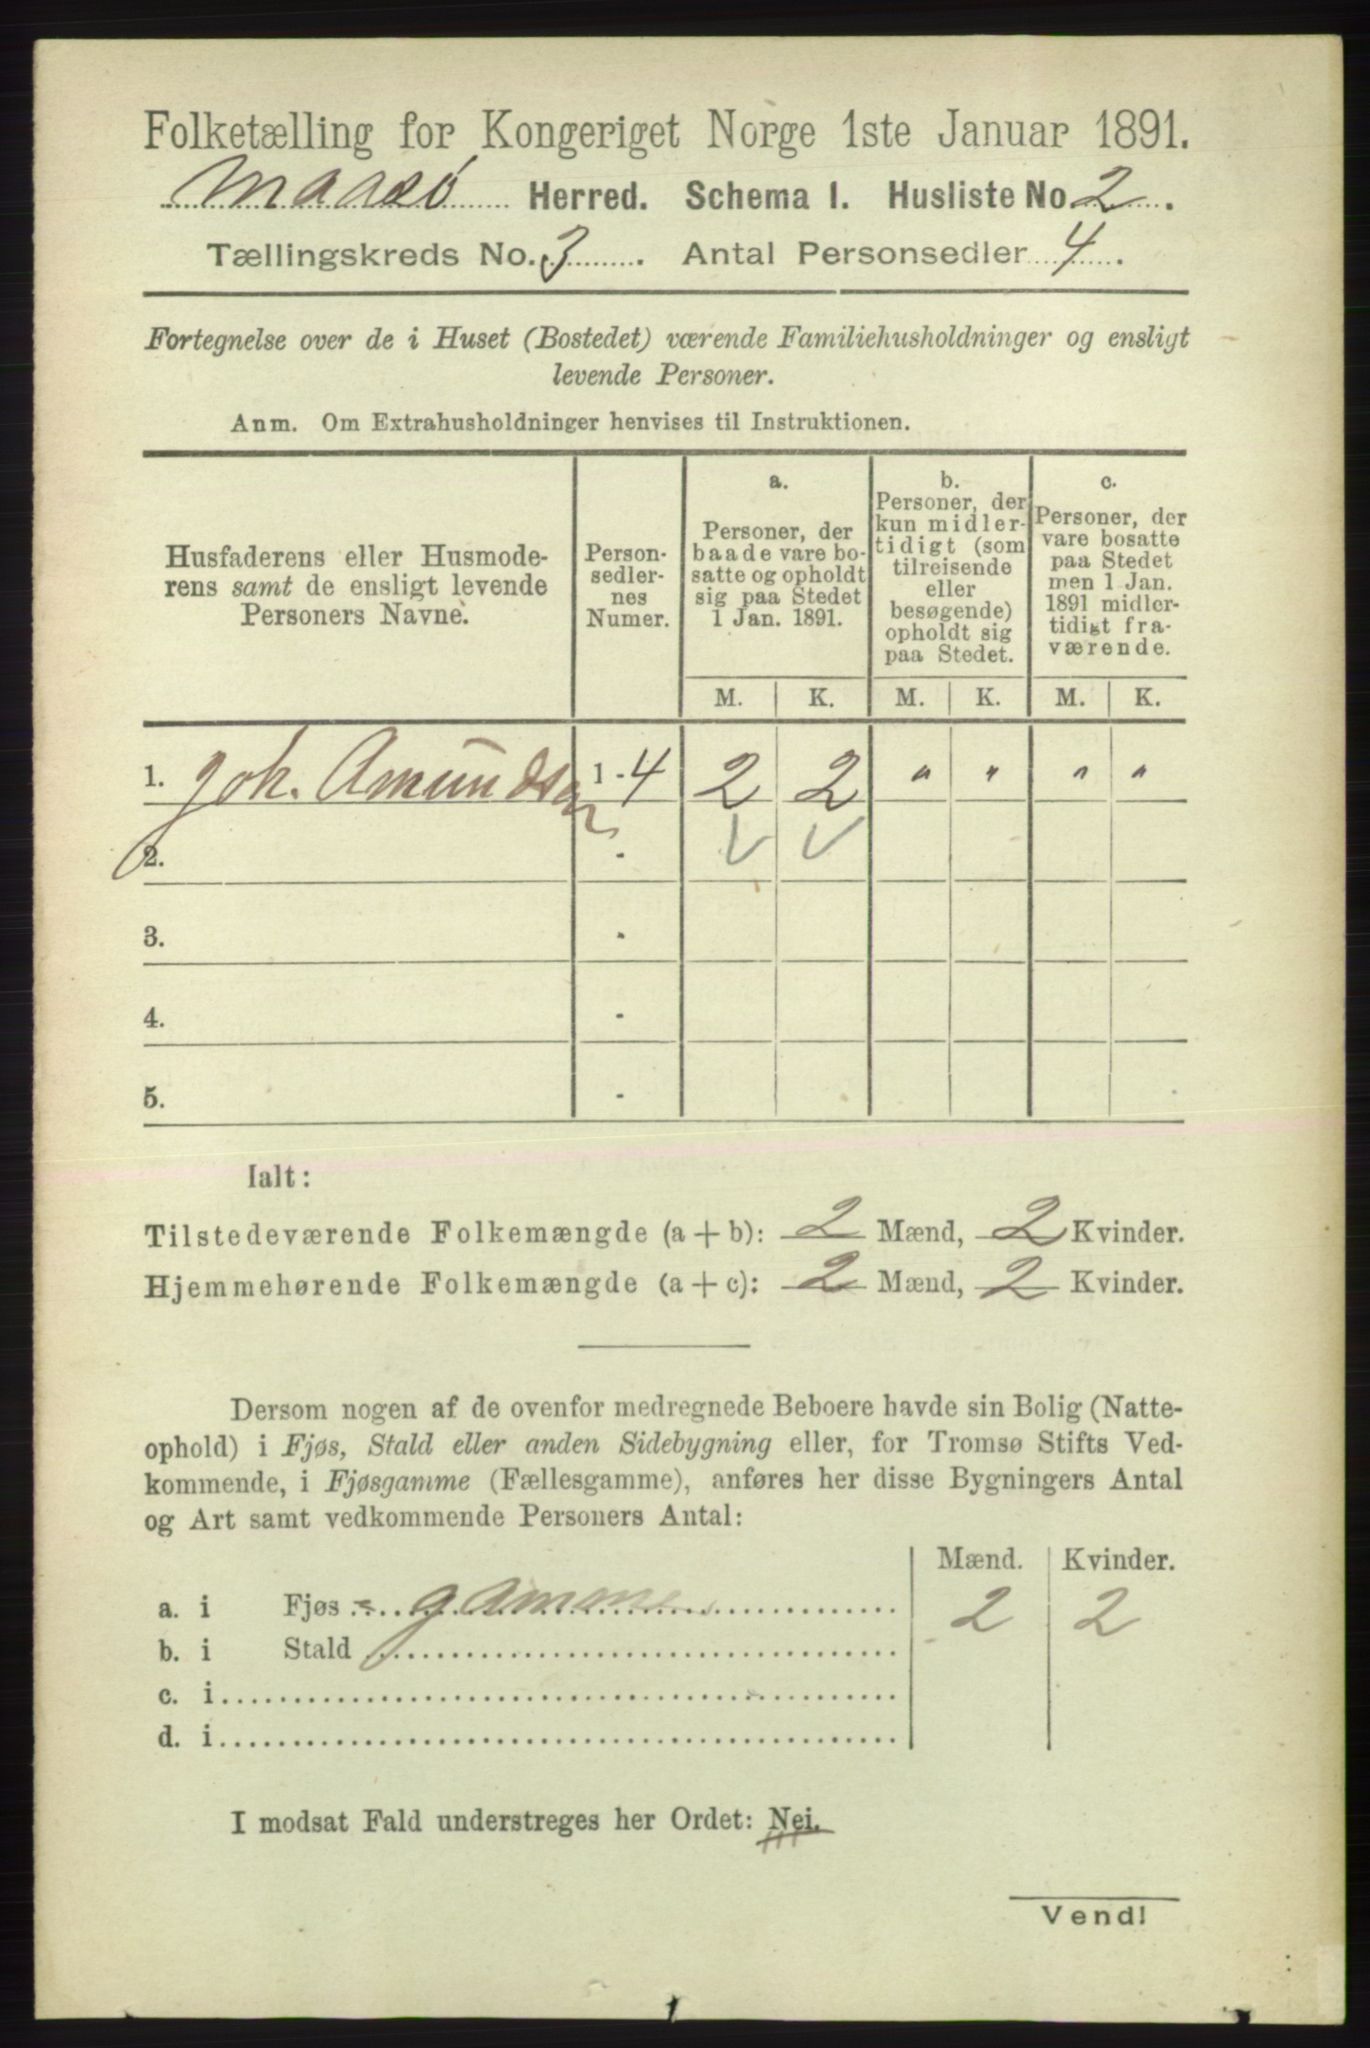 Folketælling for Kongeriget Norge 1ste Januar 1891.
Maasø Herred. Schema I. Husliste No. 2.
Tællingskreds No. 3. Antal Personsedler 4.
Fortegnelse over de i Huset (Bostedet) værende Familiehusholdninger og ensligt
levende Personer.
Anm. Om Extrahusholdninger henvises til Instruktionen.
Husfaderens eller Husmode-
rens samt de ensligt levende
Personers Navne.
Person-
sedler-
nes
Numer.
a.
Personer, der
baade vare bo-
satte og opholdt
sig paa Stedet
1 Jan. 1891.
b.
Personer, der
kun midler-
tidigt (som
tilreisende
eller
besøgende)
opholdt sig
paa Stedet.
c.
Personer, der
vare bosatte
paa Stedet
men 1 Jan.
1891 midler-
tidigt fra-
værende.
M. K. M. K. M. K.
1. Joh. Amundsen 1 - 4 2 2 " " " "
2. -
3. -
4. -
5. -
Ialt:
Tilstedeværende Folkemængde (a + b): 2 Mænd, 2 Kvinder.
Hjemmehørende Folkemængde (a + c): 2 Mænd, 2 Kvinder.
Dersom nogen af de ovenfor medregnede Beboere havde sin Bolig (Natte-
ophold) i Fjøs, Stald eller anden Sidebygning eller, for Tromsø Stifts Ved-
kommende, i Fjøsgamme (Fællesgamme), anføres her disse Bygningers Antal
og Art samt vedkommende Personers Antal:
Mænd. Kvinder.
a. i Fjøs = gamme 2 2
b. i Stald
c. i
d. i
I modsat Fald understreges her Ordet: Nei.
Vend!